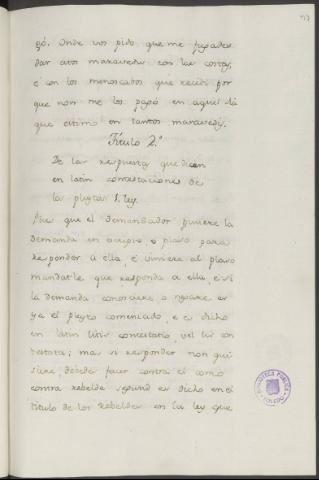 gó. Onde vos pido que me fagades
dar atos maravedis con las costas,
é con los menoscabos que recibí por
que non me los pagó en aquel dia
que estimo en tantos maravedis.
Titulo 2.º
De las respuestas que dicen
en latin contestaciones de
los pleytos 1. ley.
Pues que el demandador pusiere la
demanda en escripto e plazo para
responder á ella, é viniere al plazo
mandarle que responda a ella, e si
la demanda conosciere, o negare es
ya el pleyto comenzado, e es dicho
en latin litis contestatio, vel lis con
testata; mas si responder non qui
siere, débese facer contra él como
contra rebelde segund es dicho en el
titulo de los rebeldes en la ley que
BIBLIOTECA PUBLICA
TOLEDO